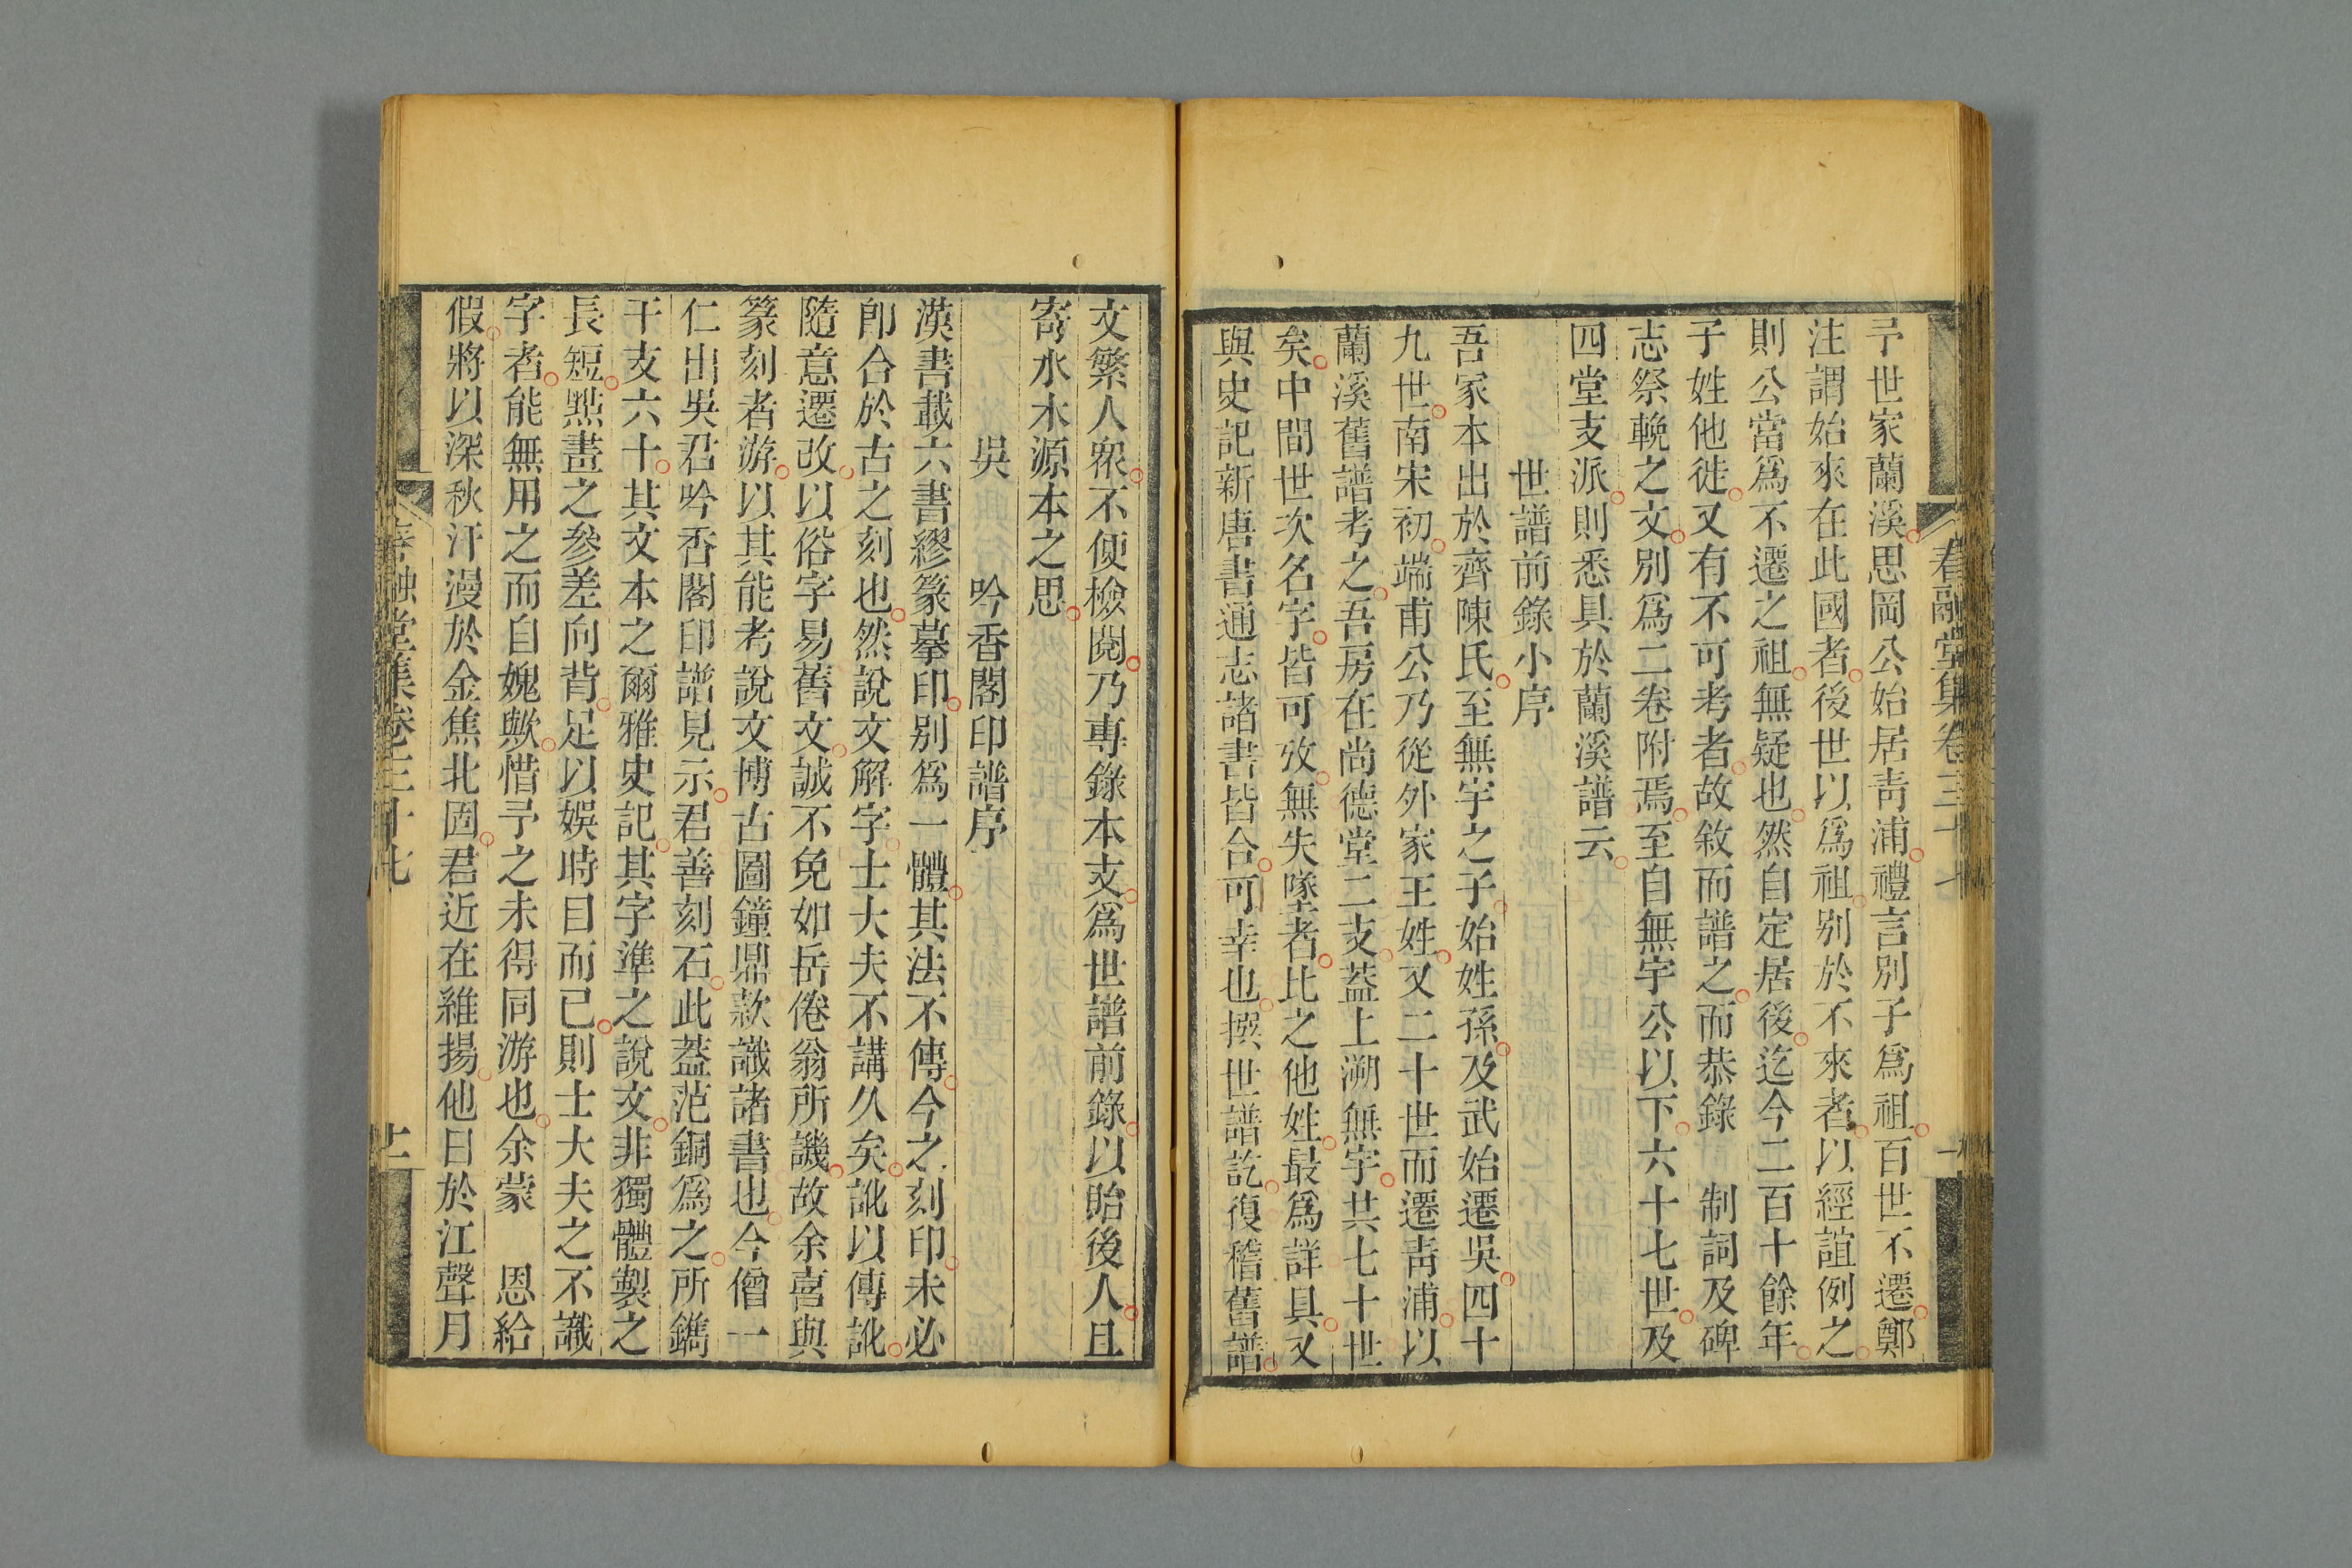 春融堂集卷三十七
予世家蘭溪思岡公始居靑浦禮言別子爲祖百世不遷鄭
注謂始來在此國者後世以爲祖別於不來者以經誼例之
則公當爲不遷之祖無疑也然自定居後迄今二百十餘年
子姓他徙又有不可考者故敘而譜之而恭錄　制詞及碑
志祭輓之文別爲二卷附焉至自無宇公以下六十七世及
四堂支派則悉具於蘭溪譜云
世譜前錄小序
吾家本出於齊陳氏至無宇之子始姓孫及武始遷吳四十
九世南宋初端甫公乃從外家王姓又二十世而遷靑浦以
蘭溪舊譜考之吾房在尚德堂二支蓋上溯無宇共七十世
矣中間世次名字皆可攷無失墜者比之他姓最爲詳具又
與史記新唐書通志諸書皆合可幸也撰世譜訖復稽舊譜
文繁人眾不便檢閱乃專錄本支爲世譜前錄以貽後人且
寄水木源本之思
吳　吟香閣印譜序
漢書載六書繆篆摹印別爲一體其法不傳今之刻印未必
卽合於古之刻也然說文解字士大夫不講久矣訛以傳訛
隨意遷改以俗字易舊文誠不免如岳倦翁所譏故余喜與
篆刻者游以其能考說文博古圖鐘鼎款識諸書也今僧一
仁出吳君吟香閣印譜見示君善刻石此蓋范銅爲之所鐫
干支六十其文本之爾雅史記其字準之說文非獨體製之
長短點畫之參差向背足以娛時目而已則士大夫之不識
字者能無用之而自媿歟惜予之未得同游也余蒙　恩給
假將以深秋汗漫於金焦北固君近在維揚他日於江聲月
春融堂集卷三十七
十一